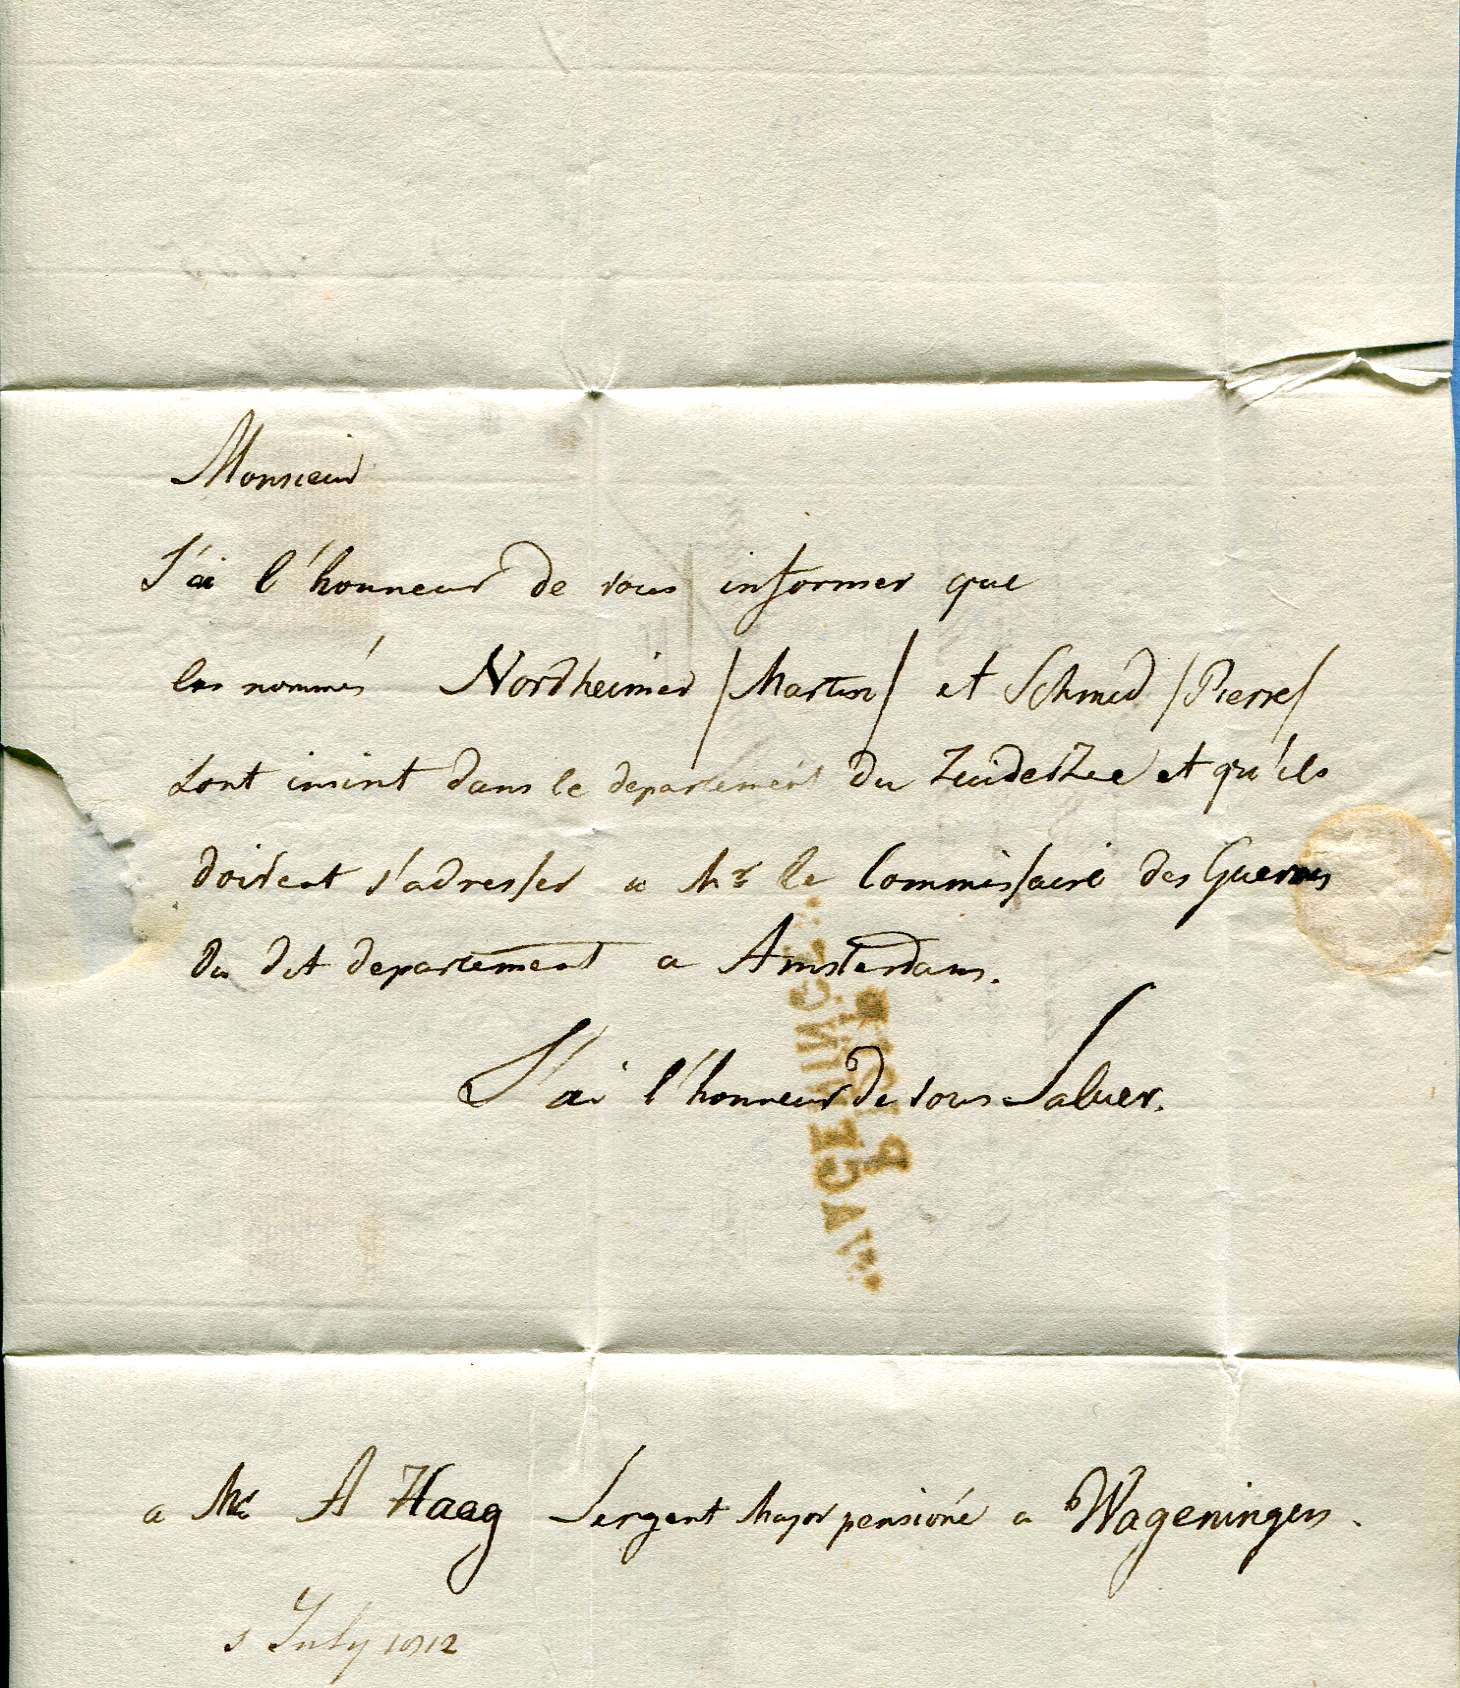 Monsieur
J'ai l'honneur de vous informer que
les nommés Nordheimer /Martin/ et Schmid /Pierre/
sont inscrit dans le departement du ZuiderZee et qu'ils
doivent s'adresser a Mr le Commissaire des Guerres
du dit departement a Amsterdam.
J'ai l'honneur de vous Saluer.
a Mr A Haag Sergent Major pensioné a Wageningen.
July 1812